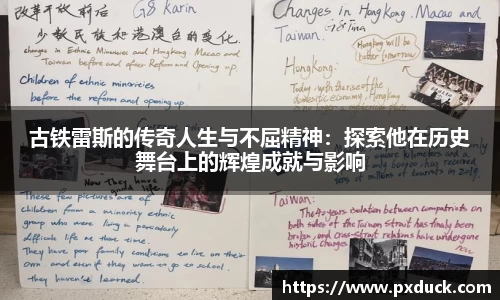 改革开放前后
G8 Karin
少数民族和港澳台的变化
changes in Ethnic Minorities and HongKong Macao and
Taiwan before and after Reform and Opening up.
Children of ethnic minorities
before the reform and opening up.
Changes in HongKong. Macao and
Taiwan.
G8 Tina
HongKong will be
better tomorrow!
HongKong:
Today, with the rise of the
domestic economy, HongKong
is no longer a
古铁雷斯的传奇人生与不屈精神：探索他在历史
舞台上的辉煌成就与影响
These few pictures are of
children from a minority ethnic
group who were living a particularly
difficult life at that time.
They have poor family conditions so live on their
own and even if they want to go to school.
they haven't learned.
Taiwan:
The 40 years isolation between compatriots on
both sides of the Taiwan Strait has finally been
broken, and cross-Strait relations have undergone
historic changes.
https://www.pxduck.com